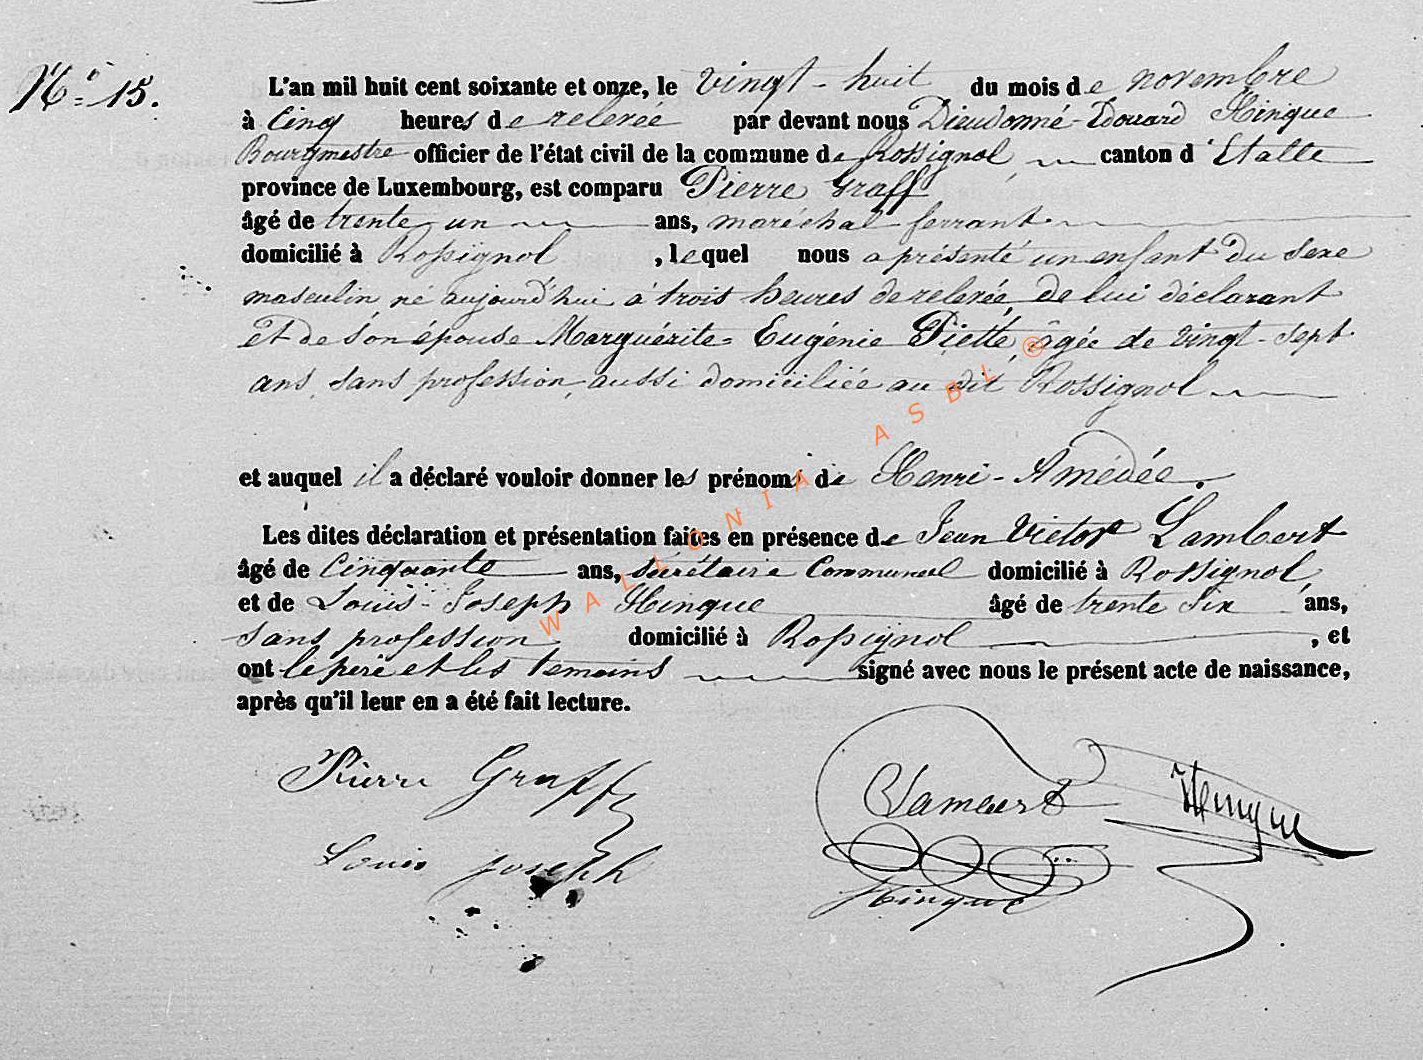 No 15.
L'an mil huit cent soixante et onze, le vingt-huit du mois de novembre
à Cinq heures de relevée par devant nous Dieudonné-Edouard Hinque
Bourgmestre officier de l'état civil de la commune de Rossignol canton d'Etalle
province de Luxembourg, est comparu Pierre Graff
âgé de trente un ans, maréchal ferrant
domicilié à Rossignol, lequel nous a présenté un enfant du sexe
masculin né aujourd'hui à trois heures de relevée de lui déclarant
et de son épouse Marguérite-Eugénie Piette, âgée de vingt-sept
ans, sans profession, aussi domiciliée au dit Rossignol
et auquel il a déclaré vouloir donner les prénoms de Henri-Amédée.
Les dites déclaration et présentation faites en présence de Jean Victor Lambert
âgé de Cinquante ans, sécrétaire Communal domicilié à Rossignol,
et de Louis-Joseph Hinque âgé de trente six ans,
sans profession domicilié à Rossignol, et
ont le père et les temoins signé avec nous le présent acte de naissance,
après qu'il leur en a été fait lecture.
Pierre Graff
Lambert Hinque
Louis joseph
Hinque
WALLONIA ASBL ®